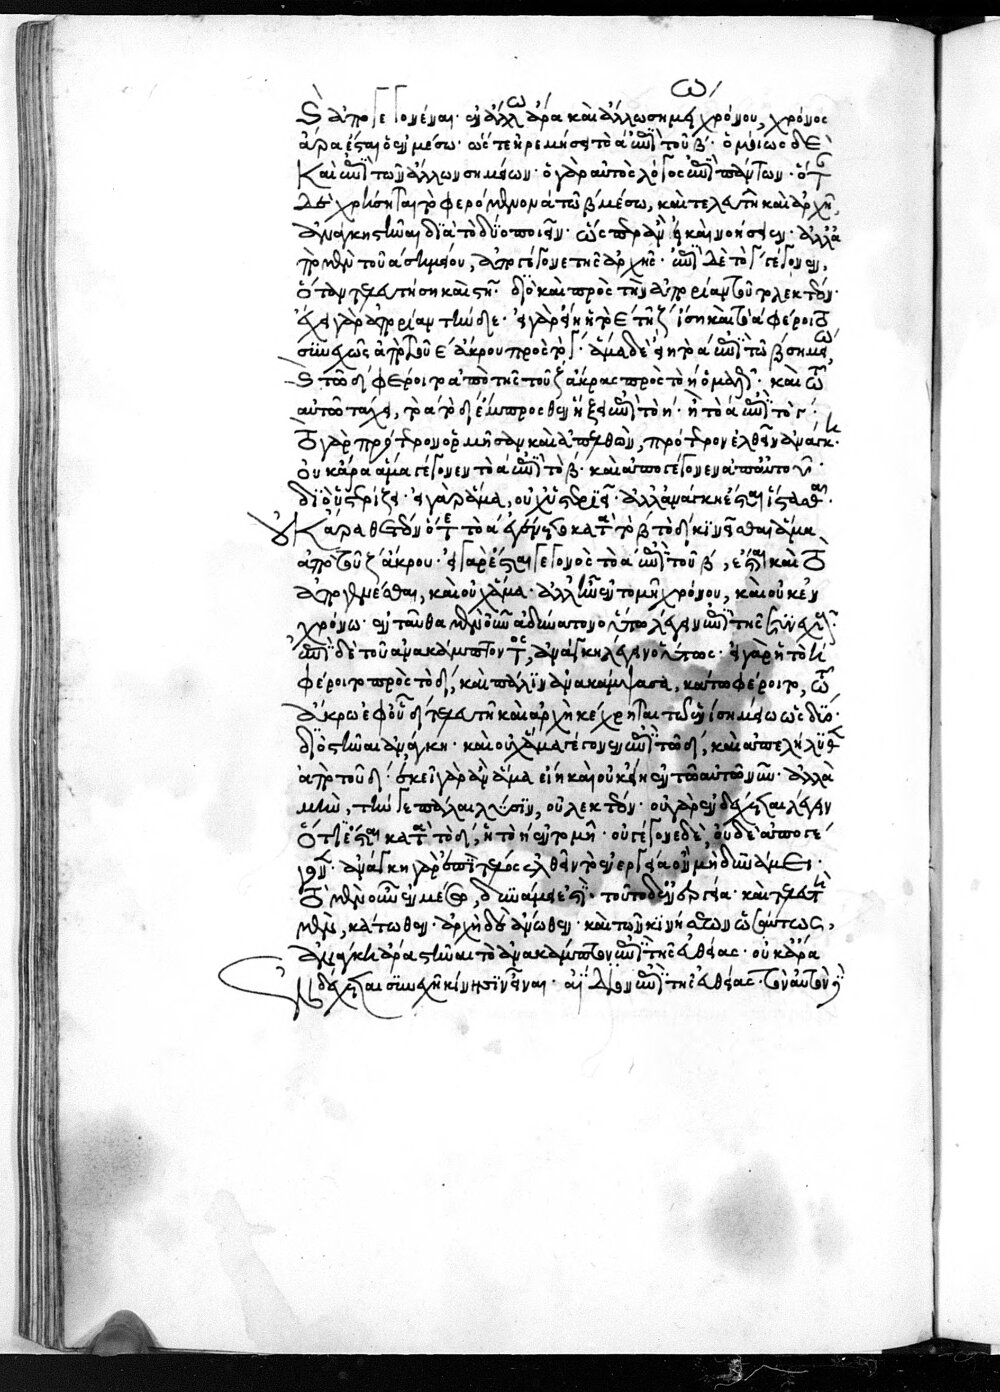 ω
καὶ ἀπογεγονέναι· ἐν ἄλλω ἄρα καὶ ἄλλω σημείω χρόνου, χρόνος
ἄρα ἔσται ὁ ἐν μέσω· ὥστε ἠρεμήσει τὸ α ἐπὶ τοῦ β· ὁμοίως δὲ
καὶ ἐπὶ τῶν ἄλλων σημείων· ὁ γὰρ αὐτὸς λόγος ἐπὶ πάντων· ὅταν
δὲ χρήσηται τὸ φερόμενον α τῶ β μέσω, καὶ τελευτῆ καὶ ἀρχῆ,
ἀνάγκη στῆναι διὰ τὸ δύο ποιεῖν· ὥσπερ ἂν εἰ καὶ νοήσειεν· ἀλλὰ
ἀπὸ μὲν τοῦ α σημείου, ἀπογέγονε τῆς ἀρχῆς· ἐπὶ δὲ τὸ γ γέγονεν,
ὅταν τελευτήση καὶ στῆ· διὸ καὶ πρὸς τὴν ἀπορίαν τοῦτο λεκτέον·
ἔχει γὰρ ἀπορίαν τήνδε· εἰ γὰρ εἴη ἡ τὸ ε τῆ ζ ἴση καὶ τὸ α φέροιτο
συνεχῶς ἀπὸ τοῦ ε ἄκρου πρὸς τὸ γ· ἅμα δὲ εἴη τὸ α ἐπὶ τῶ β σημείω,
καὶ τὸ δ φέροιτο ἀπὸ τῆς τοῦ ζ ἄκρας πρὸς τὸ η ὁμαλῶς· καὶ τῶ
αὐτῶ τάχει, τὸ α τὸ δ ἔμπροσθεν ἥξει ἐπὶ τὸ η· ἢ τὸ α ἐπὶ τὸ γ·
τὸ γὰρ πρότερον ὁρμῆσαν καὶ ἀπελθὸν, πρότερον ἐλθεῖν ἀνάγκη·
οὐκ ἄρα ἅμα γέγονεν τὸ α ἐπὶ τὸ β· καὶ ἀπογέγονεν ἀπ' αὐτοῦ·
διὸ ὑστερίζει· εἰ γὰρ ἅμα, οὐχ ὑστεριεῖ· ἀλλ' ἀνάγκη ἔσται ἵστασθαι·
οὐκ ἄρα θετέον ὅτε τὸ α ἐγένετο κατὰ τὸ β τὸ δ κινεῖσθαι ἅμα
ἀπὸ τοῦ ζ ἄκρου· εἰ γὰρ ἔσται γεγονὸς τὸ α ἐπὶ τοῦ β, ἔσται καὶ τὸ
ἀπογενέσθαι, καὶ οὐχ ἅμα· ἀλλ' ἦν ἐν τομῆ χρόνου, καὶ οὐκ ἐν
χρόνω· ἐνταῦθα μὲν οὖν ἀδύνατον οὕτω λέγειν ἐπὶ τῆς συνεχοῦς·
ἐπὶ δὲ τοῦ ἀνακάμπτοντος, ἀνάγκη λέγειν οὕτως· εἰ γὰρ ἡ τὸ η
φέροιτο πρὸς τὸ δ, καὶ πάλιν ἀνακάμψασα, κάτω φέροιτο, τῶ
ἄκρω ἐφ' οὗ δ τελευτῆ καὶ ἀρχῆ κέχρηται τῶ ἑνὶ σημείω ὡς δύο·
διὸ στῆναι ἀνάγκη· καὶ οὐχ ἅμα γέγονεν ἐπὶ τῶ δ, καὶ ἀπελήλυθεν
ἀπὸ τοῦ δ· ἐκεῖ γὰρ ἂν ἅμα εἴη καὶ οὐκ εἴη ἐν τῶ αὐτῶ νῦν· ἀλλὰ
μὴν, τήν γε πάλαι λύσιν, οὐ λεκτέον· οὐ γὰρ ἐνδέχεται λέγειν
ὅτι ἔσται κατὰ τὸ δ, ἡ τὸ η ἐν τομῆ· οὐ γέγονε δὲ, οὐδὲ ἀπογέ
γονεν· ἀνάγκη γὰρ ἐπὶ τέλος ἐλθεῖν τὸ ἐνεργεία ὂν μὴ δυνάμει·
τὸ μὲν οὖν ἐν μέσω, δυνάμει ἐστί· τοῦτο δ' ἐνεργεία· καὶ τελευτὴ
μὲν, κάτωθεν· ἀρχὴ δὲ ἄνωθεν· καὶ τῶν κινήσεων ὡσαύτως,
ἀνάγκη ἄρα στῆναι τὸ ἀνακάμπτον ἐπὶ τῆς εὐθείας· οὐκ ἄρα
ἐνδέχεται συνεχῆ κίνησιν εἶναι ἀΐδιον ἐπὶ τῆς εὐθείας· τὸν αὐτὸν